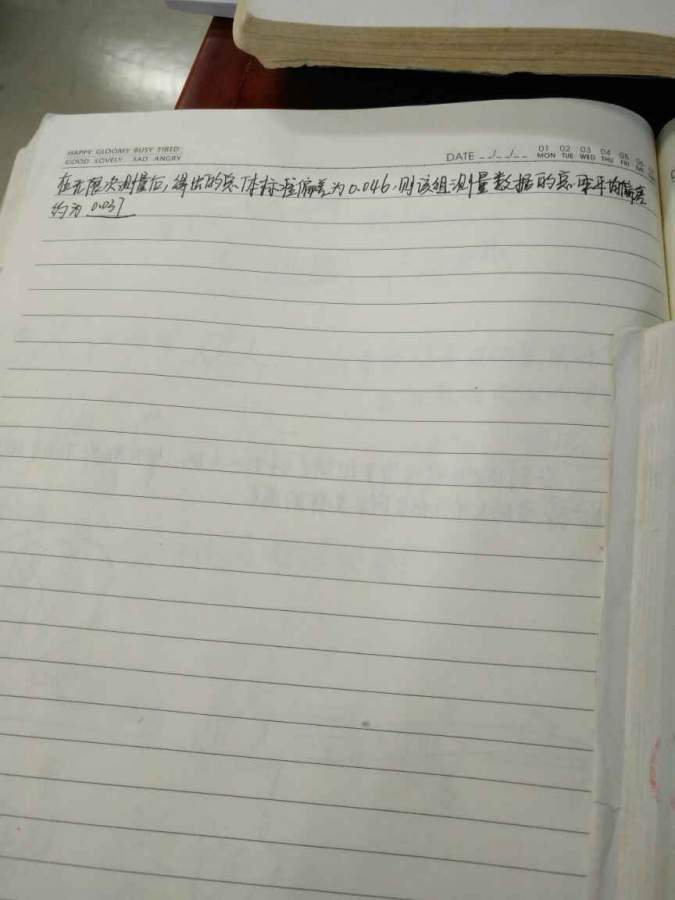 HAPPY GLOOMY BUSY TIRED
GOOD LOVELY SAD ANGRY
DATE _ _/_ _/_ _
01 02 03 04 05 06
MON TUE WED THU FRI
在无限次测量后,得出的总体标准偏差为0.046,则该组测量数据的总体平均偏差
约为 0.037